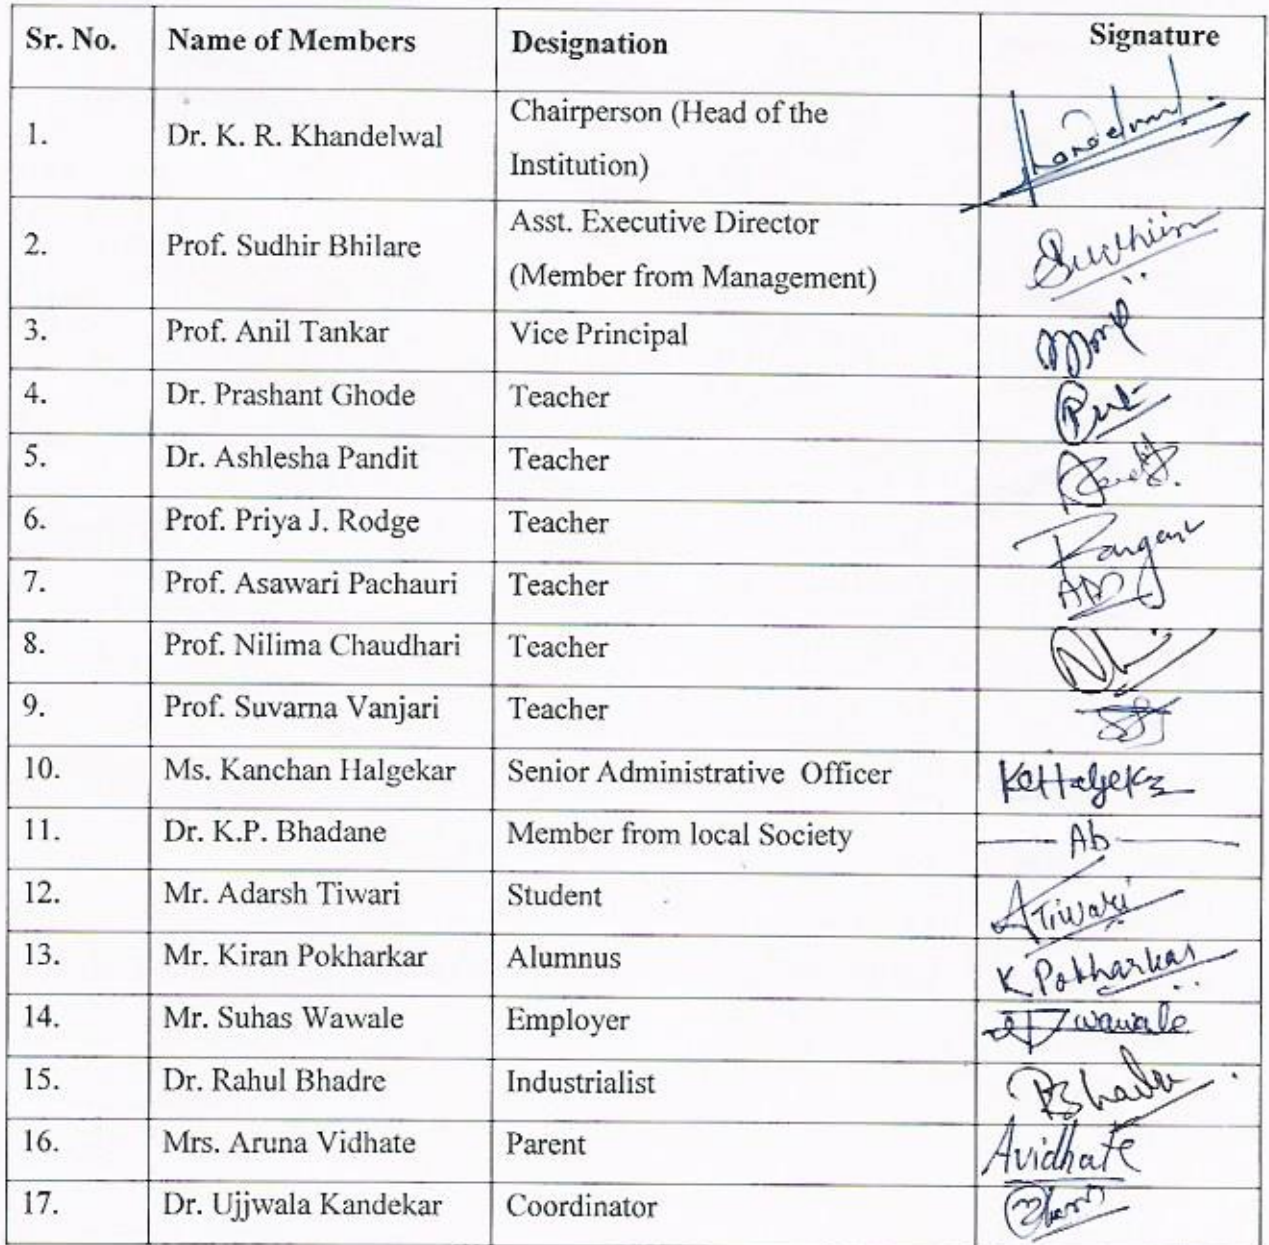 Sr. No. Name of Members Designation Signature
1. Dr. K. R. Khandelwal Chairperson (Head of the
Institution) Khandelwal
2. Prof. Sudhir Bhilare Asst. Executive Director
(Member from Management)
3. Prof. Anil Tankar Vice Principal
4. Dr. Prashant Ghode Teacher
5. Dr. Ashlesha Pandit Teacher
6. Prof. Priya J. Rodge Teacher
7. Prof. Asawari Pachauri Teacher
8. Prof. Nilima Chaudhari Teacher
9. Prof. Suvarna Vanjari Teacher
10. Ms. Kanchan Halgekar Senior Administrative Officer
11. Dr. K.P. Bhadane Member from local Society Ab
12. Mr. Adarsh Tiwari Student ATiwari
13. Mr. Kiran Pokharkar Alumnus K Pokharkar
14. Mr. Suhas Wawale Employer wawale
15. Dr. Rahul Bhadre Industrialist
16. Mrs. Aruna Vidhate Parent Avidhate
17. Dr. Ujjwala Kandekar Coordinator